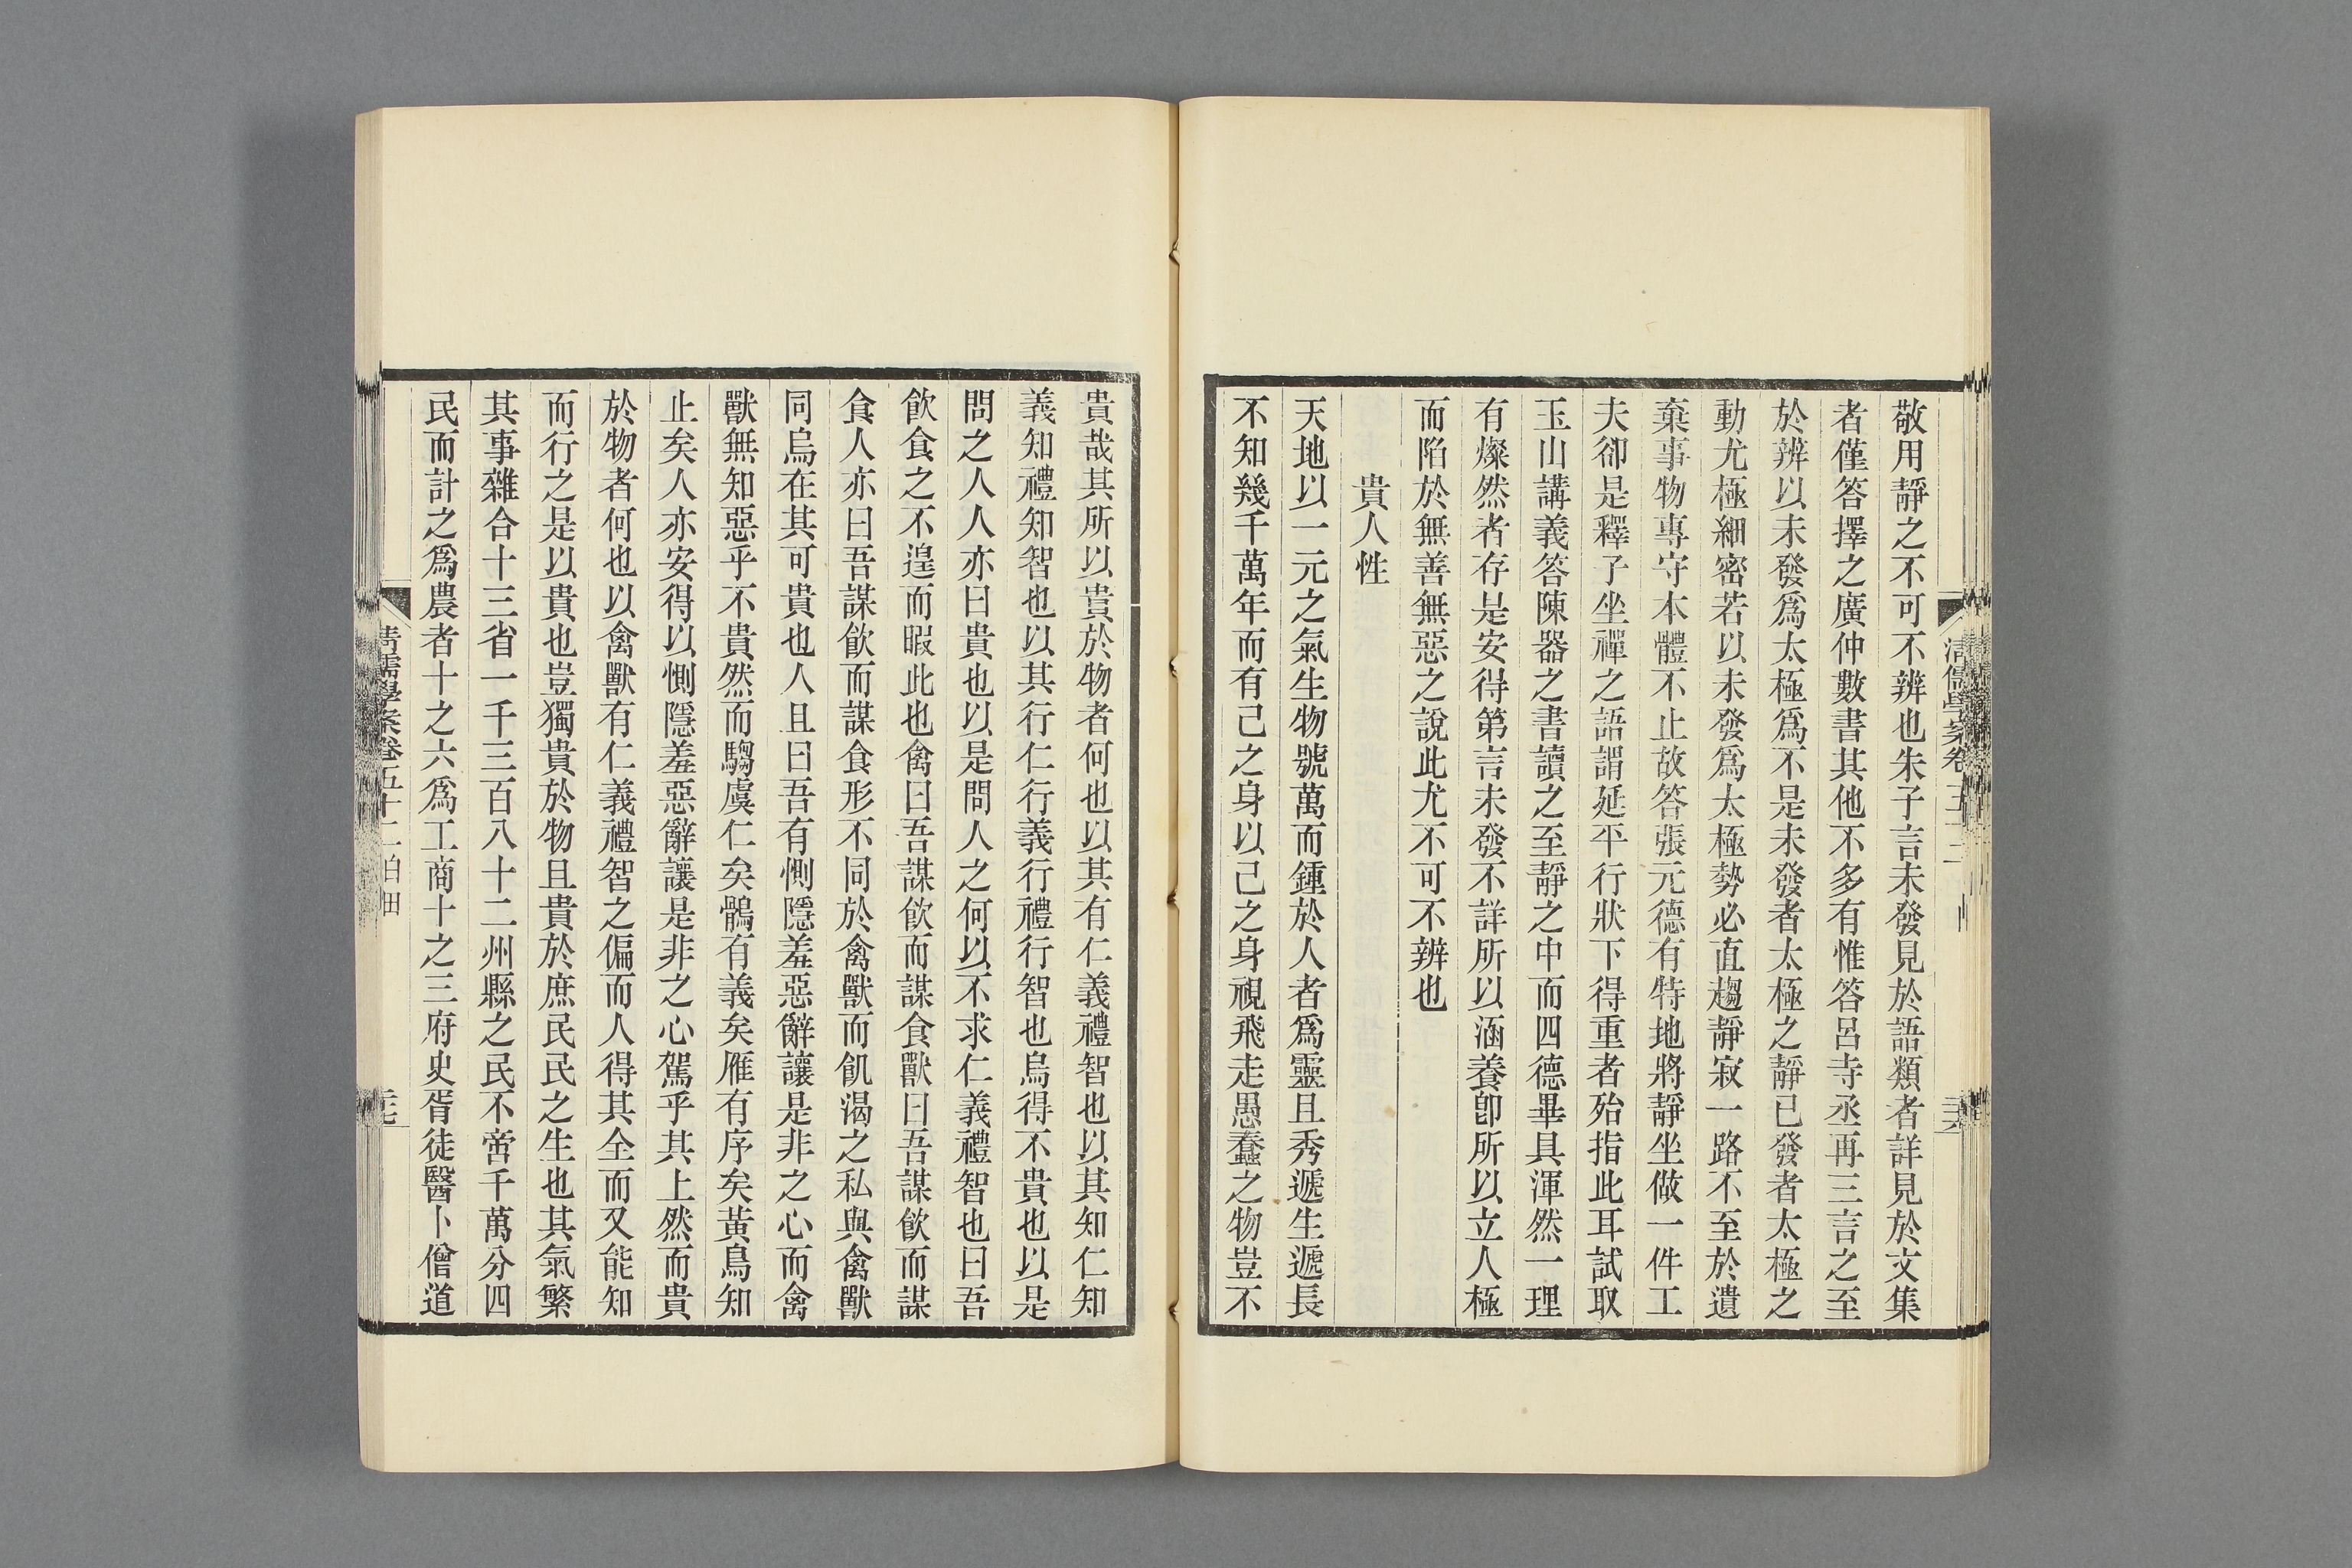 敬用靜之不可不辨也朱子言未發見於語類者詳見於文集
者僅答擇之廣仲數書其他不多有惟答呂寺丞再三言之至
於辨以未發爲太極爲不是未發者太極之靜已發者太極之
動尤極細密若以未發爲太極勢必直趨靜寂一路不至於遺
棄事物專守本體不止故答張元德有特地將靜坐做一件工
夫卻是釋子坐禪之語謂延平行狀下得重者殆指此耳試取
玉山講義答陳器之書讀之至靜之中而四德畢具渾然一理
有燦然者存是安得第言未發不詳所以涵養卽所以立人極
而陷於無善無惡之說此尤不可不辨也
貴人性
天地以一元之氣生物號萬而鍾於人者爲靈且秀遞生遞長
不知幾千萬年而有己之身以己之身視飛走愚蠢之物豈不
貴哉其所以貴於物者何也以其有仁義禮智也以其知仁知
義知禮知智也以其行仁行義行禮行智也烏得不貴也以是
問之人人亦曰貴也以是問人之何以不求仁義禮智也曰吾
飮食之不遑而暇此也禽曰吾謀飮而謀食獸曰吾謀飮而謀
食人亦曰吾謀飮而謀食形不同於禽獸而飢渴之私與禽獸
同烏在其可貴也人且曰吾有惻隱羞惡辭讓是非之心而禽
獸無知惡乎不貴然而騶虞仁矣鶻有義矣雁有序矣黃鳥知
止矣人亦安得以惻隱羞惡辭讓是非之心駕乎其上然而貴
於物者何也以禽獸有仁義禮智之偏而人得其全而又能知
而行之是以貴也豈獨貴於物且貴於庶民民之生也其氣繁
其事雜合十三省一千三百八十二州縣之民不啻千萬分四
民而計之爲農者十之六爲工商十之三府史胥徒醫卜僧道
清儒學案卷五十二 白田